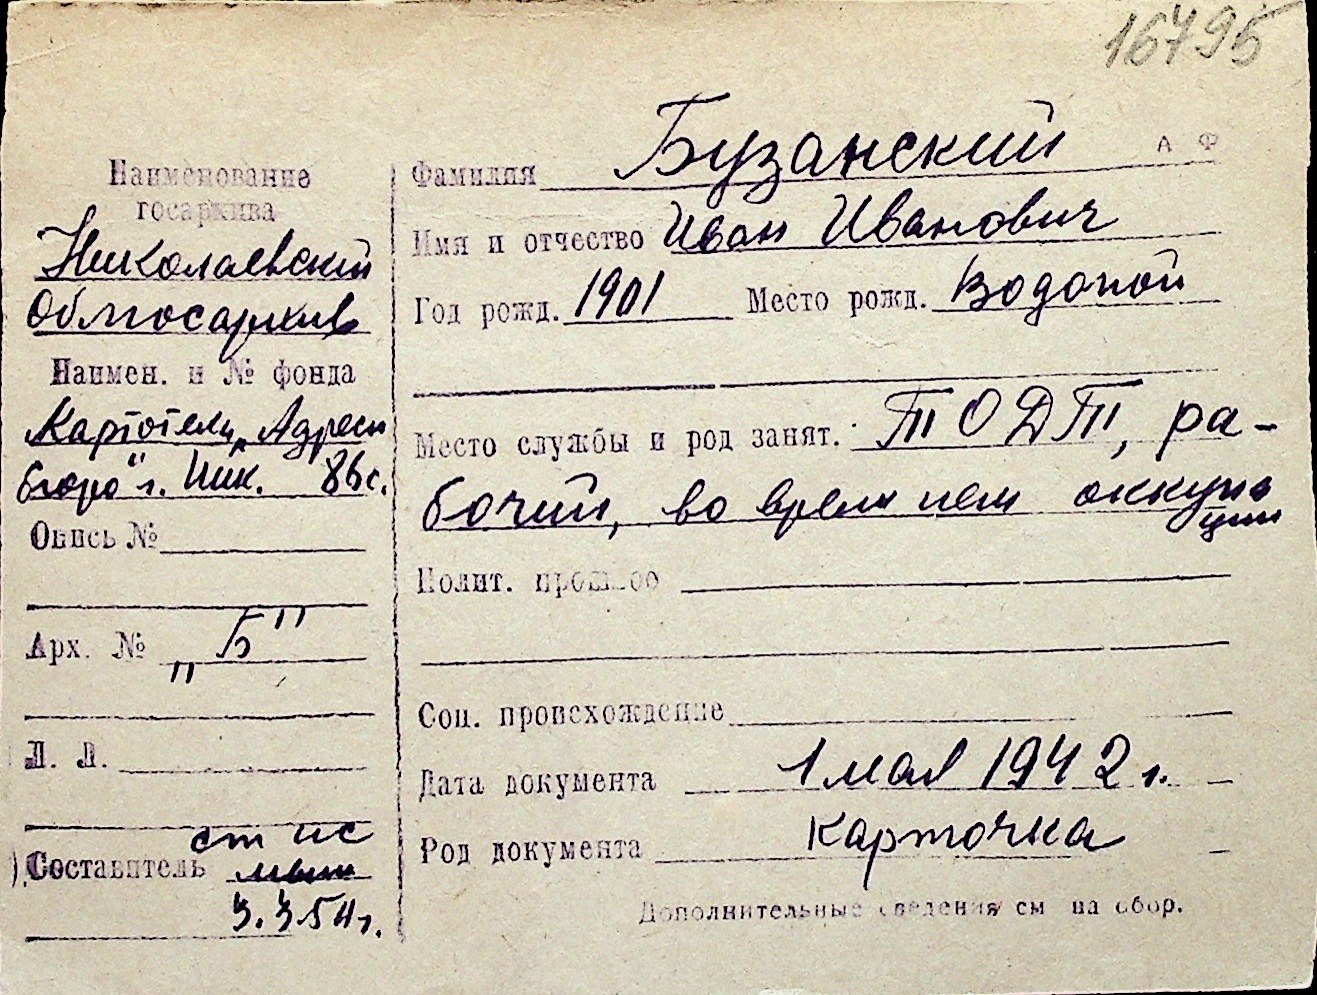 16795
Наименование
госархива
Николаевский
Облгосархив
Наимен. и № фонда
Картотека „Адресн
бюро" г. Ник. 86с.
Опись №
Арх. № „Б"
Л. Л.
ст ис
Составитель
3.3.54г.
А Ф
Фамилия Бузанский
Имя и отчество Иван Иванович
Год рожд. 1901 Место рожд. Водопой
Место службы и род занят. ТОДТ, ра-
бочий, во время нем оккупа
ции
Полит. прошлое
Соц. происхождение
Дата документа 1 мая 1942 г.
Род документа карточка
Дополнительные сведения см на обор.